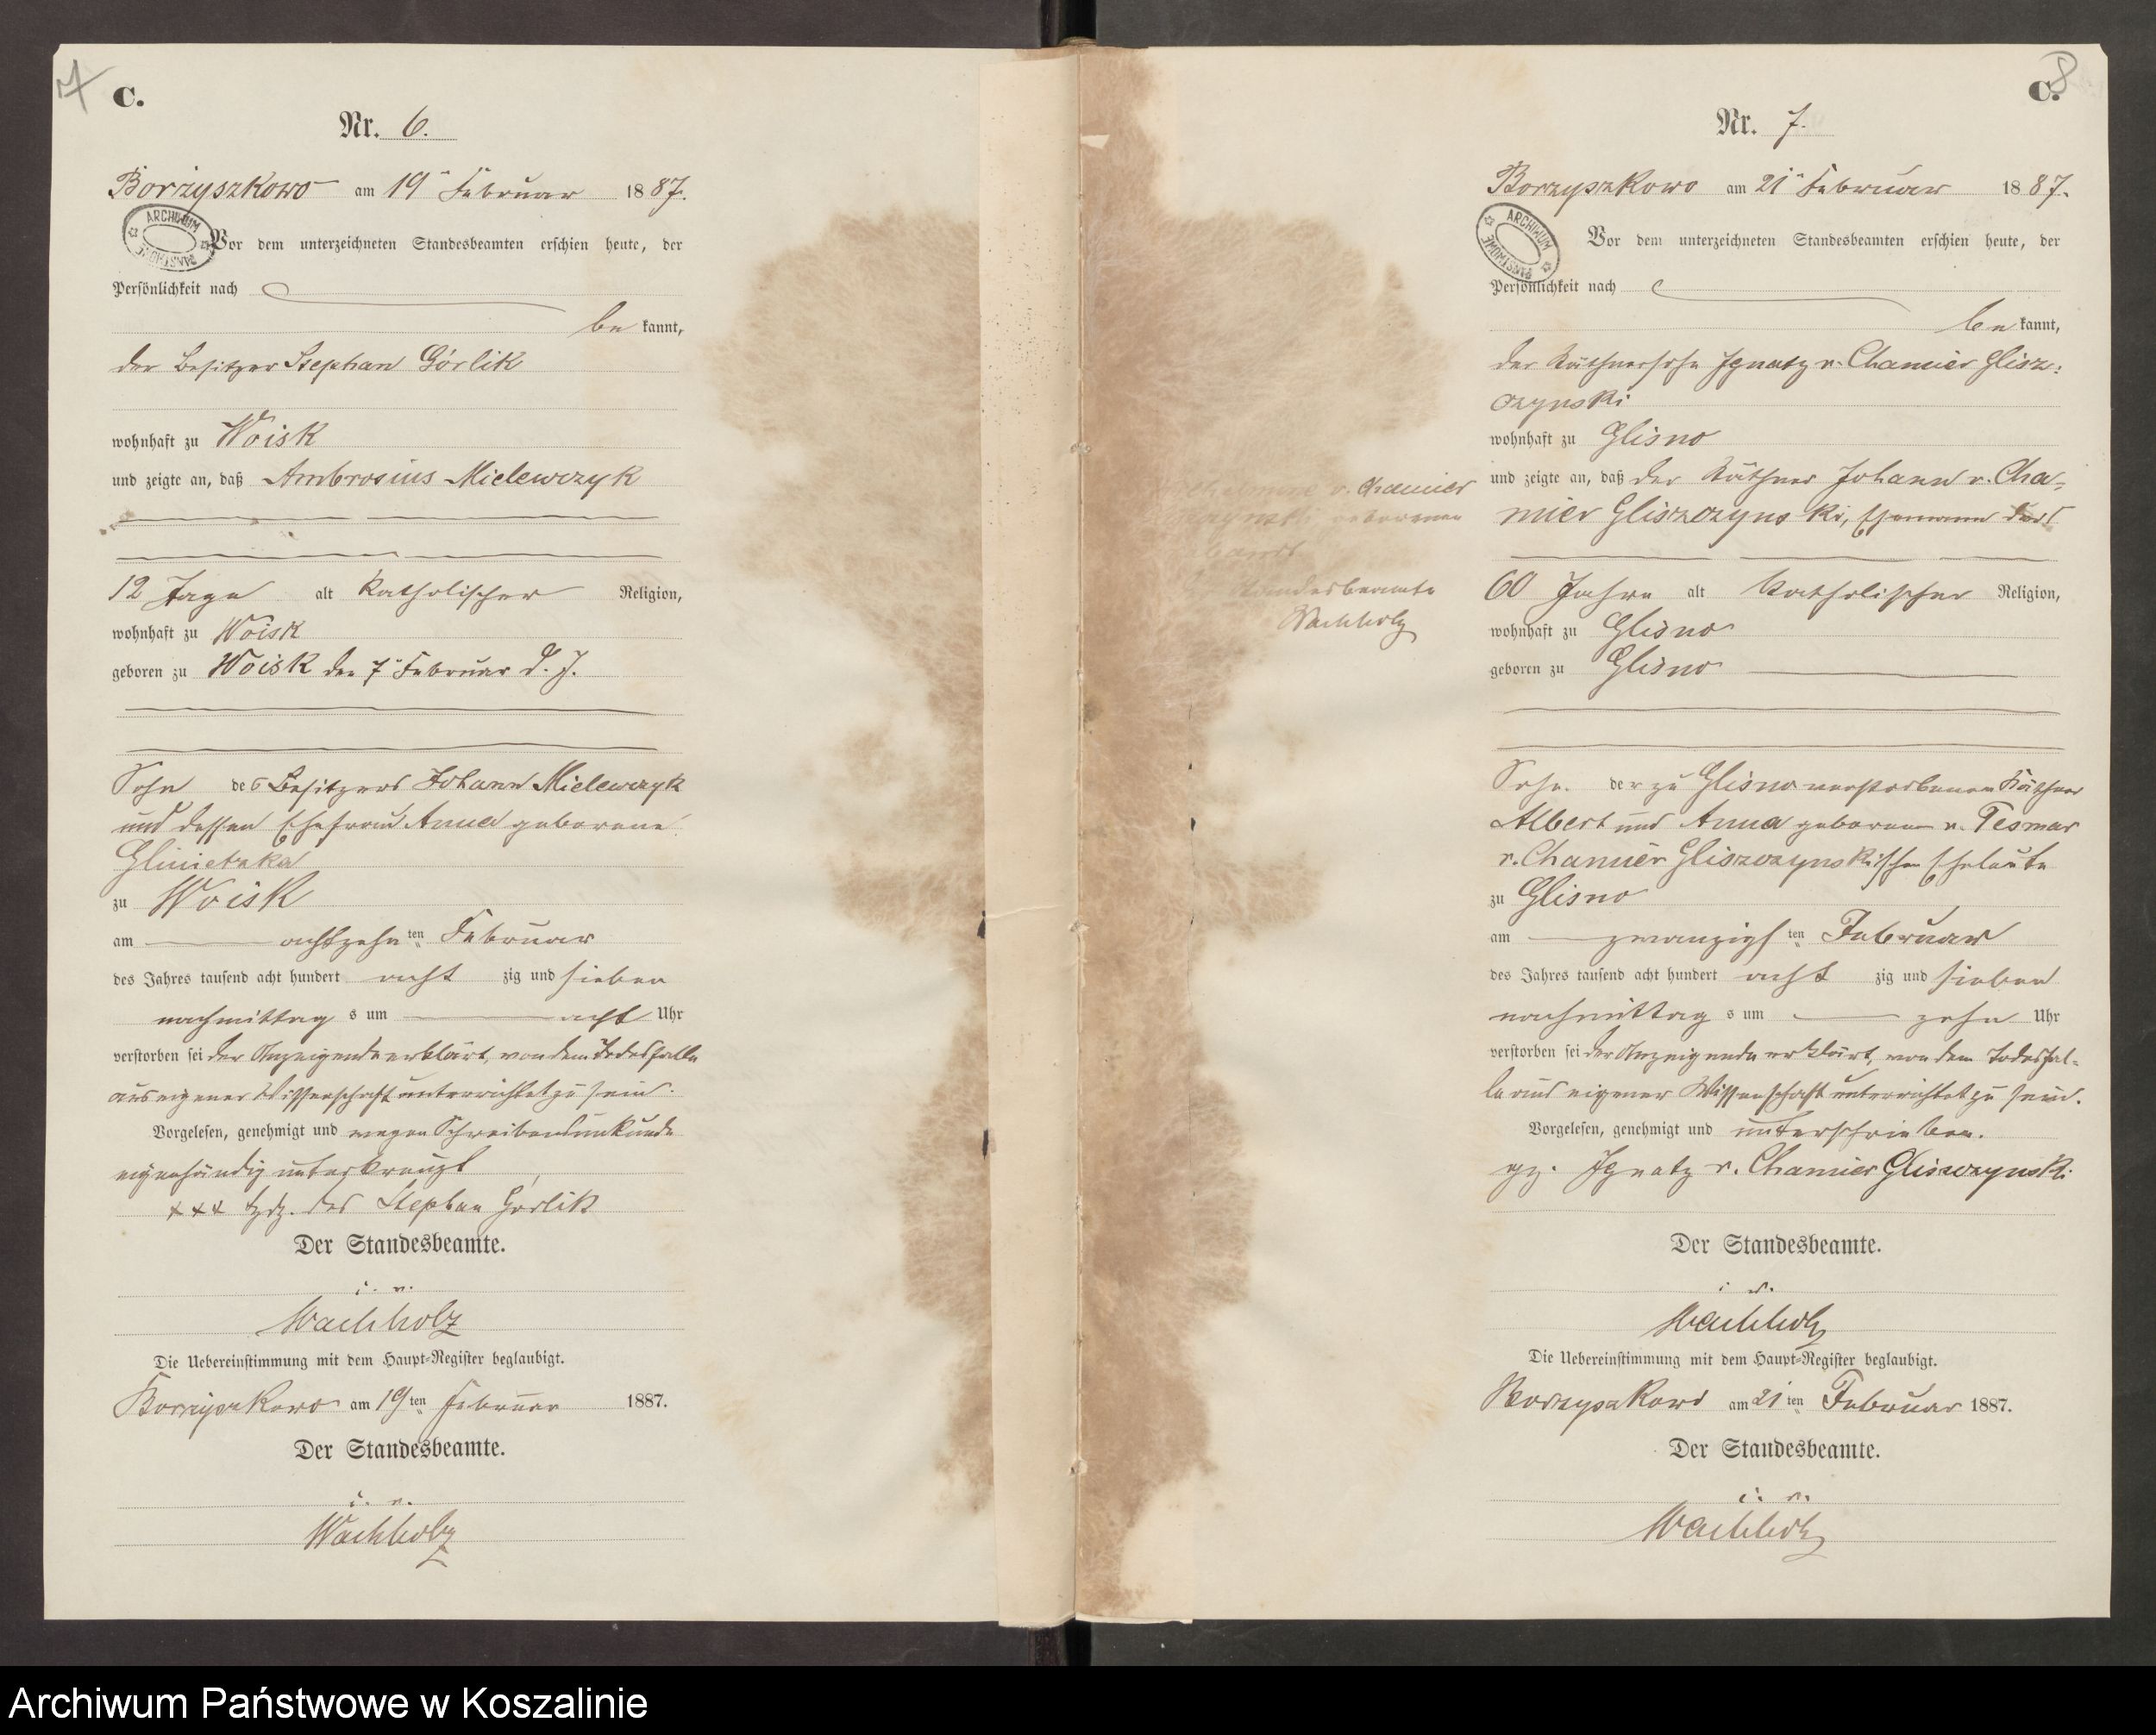 7
C.
Nr. 6.
Borzyszkowo am 19ten Februar 1887.
ARCHIWUM PAŃSTWOWE
Vor dem unterzeichneten Standesbeamten erschien heute, der
Persönlichkeit nach
be kannt,
der Besitzer Stephan Görlik
wohnhaft zu Woisk
und zeigte an, daß Ambrosius Mielewczyk
12 Tage alt katholischer Religion,
wohnhaft zu Woisk
geboren zu Woisk den 7ten Februar d. J.
Sohn des Besitzers Johann Mielewczyk
und dessen Ehefrau Anna geborene
zu Woisk
am achtzehn ten Februar
des Jahres tausend acht hundert acht zig und sieben
nachmittag s um acht Uhr
verstorben sei der Anzeigende erklärt, von dem Todesfalle
aus eigener Wissenschaft unterrichtet zu sein.
Vorgelesen, genehmigt und wegen Schreibensunkunde
eigenhändig unterkreuzt
+++ Hdz. des Stephan Görlik
Der Standesbeamte.
i. v.
Wachholz
Die Uebereinstimmung mit dem Haupt=Register beglaubigt.
Borzyszkowo am 19ten Februar 1887.
Der Standesbeamte.
i. v.
Wachholz
8
C.
Nr. 7.
Borzyszkowo am 21ten Februar 1887.
ARCHIWUM PAŃSTWOWE
Vor dem unterzeichneten Standesbeamten erschien heute, der
Persönlichkeit nach
be kannt,
der Käthnersohn Ignatz v. Chamier Glisz:
czynski
wohnhaft zu Glisno
und zeigte an, daß der Käthner Johann v. Cha-
mier Gliszczynski, Ehemann der
v. Chamier
geborenen
Standesbeamte
Wachholz
60 Jahre alt katholischer Religion,
wohnhaft zu Glisno
geboren zu Glisno
Sohn der zu Glisno verstorbenen Käthner
Albert und Anna geborenen v. Tesmar
v. Chamier Gliszczynskischen Eheleute
zu Glisno
am zwanzigs ten Februar
des Jahres tausend acht hundert acht zig und sieben
nachmittag s um zehn Uhr
verstorben sei der Anzeigende erklärt, von dem Todesfal-
le aus eigener Wissenschaft unterrichtet zu sein.
Vorgelesen, genehmigt und unterschrieben.
gz. Ignatz v. Chamier Gliszczynski
Der Standesbeamte.
i. v.
Wachholz
Die Uebereinstimmung mit dem Haupt=Register beglaubigt.
Borzyszkowo am 21ten Februar 1887.
Der Standesbeamte.
i. v.
Wachholz
Archiwum Państwowe w Koszalinie